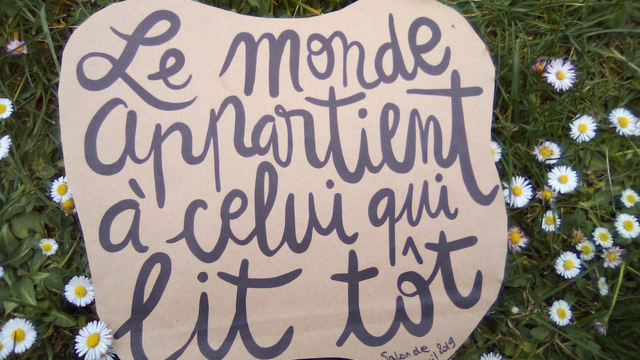 Le monde
appartient
à celui qui
lit tôt
Salon de
avril 2019